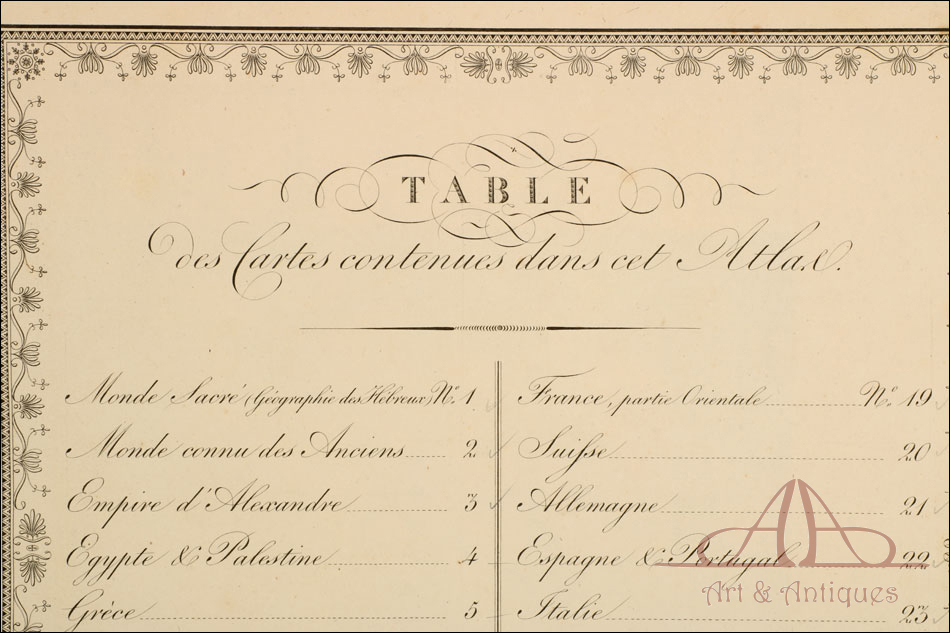 TABLE
des Cartes contenues dans cet Atlas.
Monde Sacré (Géographie des Hébreux) N.o 1
Monde connu des Anciens 2
Empire d'Alexandre 3
Egypte & Palestine 4
Grèce 5
France, partie Orientale N.o 19
Suisse 20
Allemagne 21
Espagne & Portugal 22
Italie 23
Art & Antiques